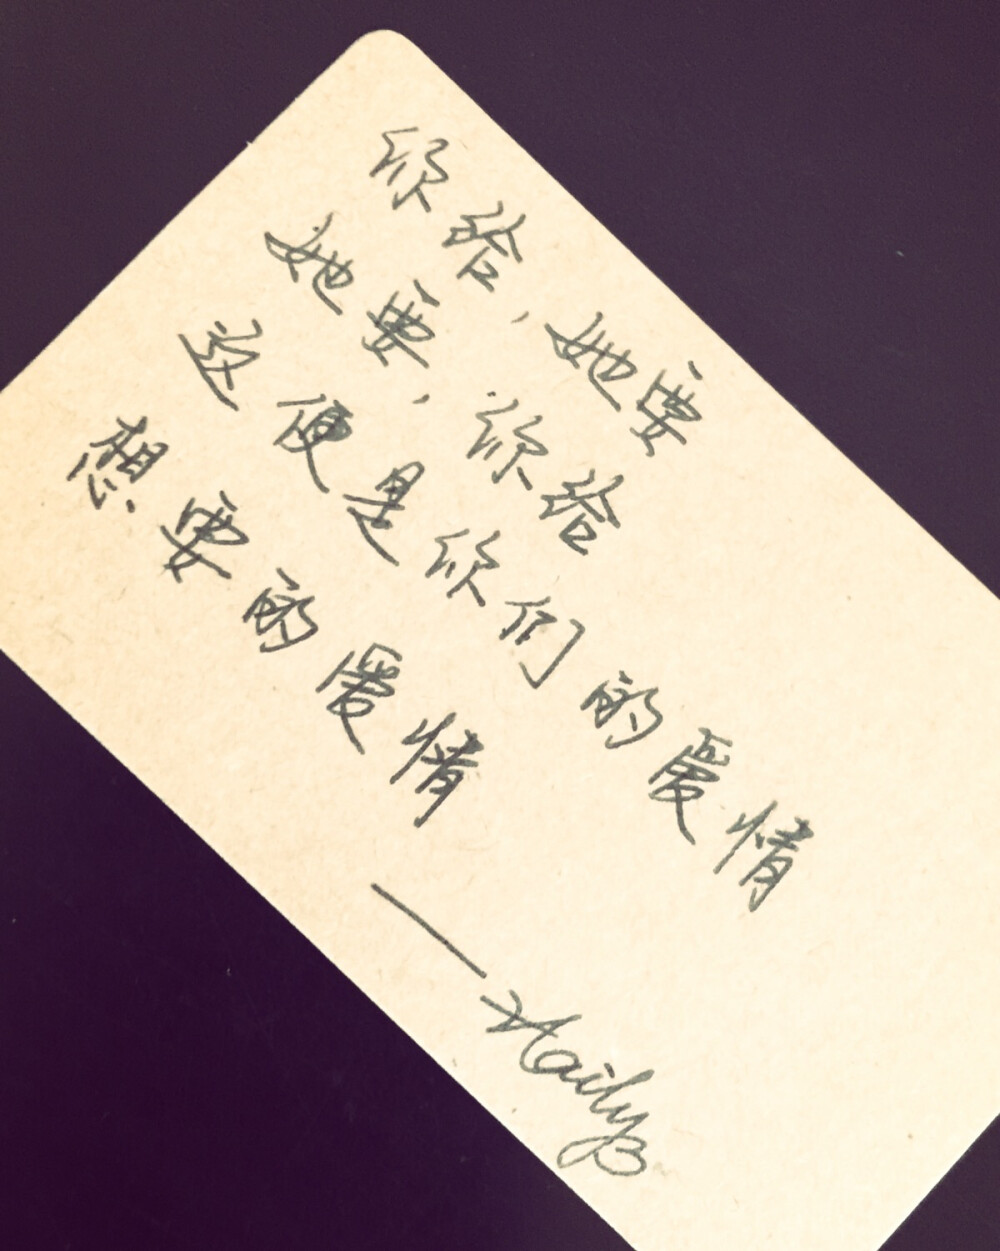 你给,她要
她要,你给
这便是你们的爱情
想要的爱情
——Haily